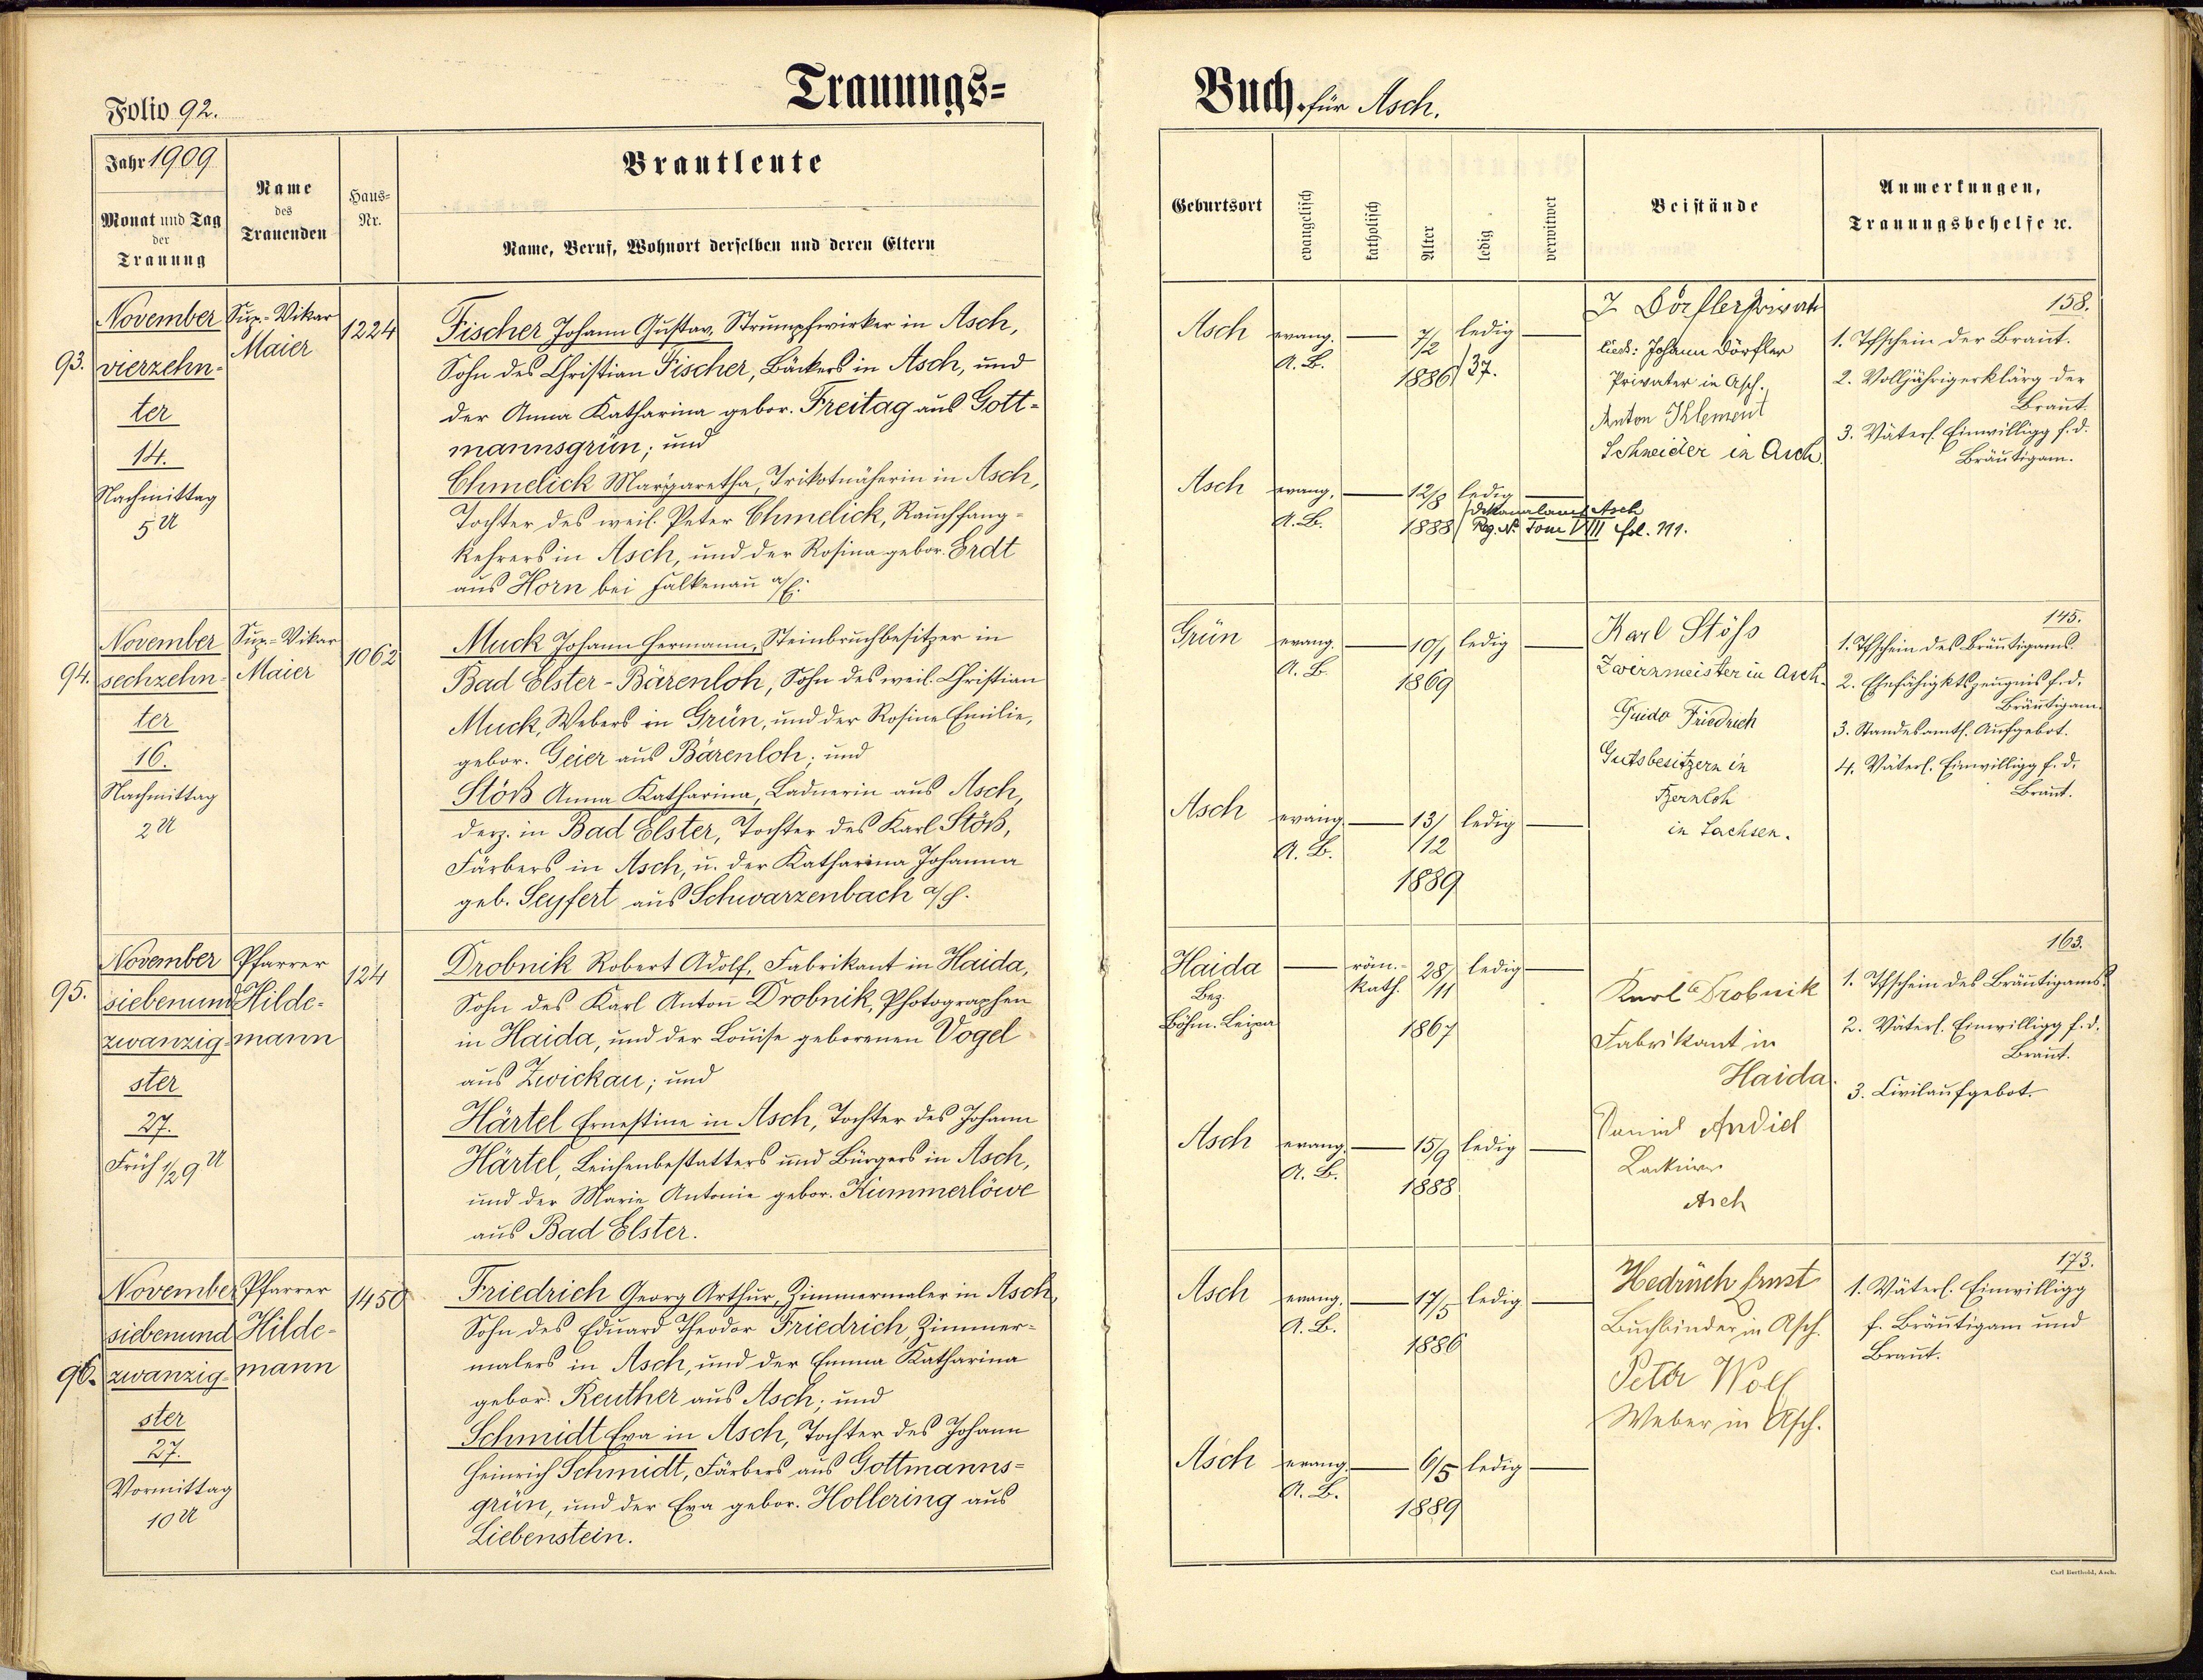 Folio 92.
Trauungs=
Jahr 1909
Monat und Tag
der
Trauung
Name
des
Trauenden
Haus=
Nr.
Brautleute
Name, Beruf, Wohnort derselben und deren Eltern
93.
November
vierzehn-
ter
14.
Nachmittag
5 U
Sup.-Vikar
Maier
1224
Fischer Johann Gustav, Strumpfwirker in Asch,
Sohn des Christian Fischer, Bäckers in Asch, und
der Anna Katharina gebor. Freitag aus Gott=
mannsgrün; und
Chmelick Margaretha, Trikotnäherin in Asch,
Tochter des weil. Peter Chmelick, Rauchfang=
kehrers in Asch, und der Rosina gebor. Erdt
aus Horn bei Falkenau a/E.
94.
November
sechzehn-
ter
16.
Nachmittag
2 U
Sup.-Vikar
Maier
1062
Muck Johann Hermann, Steinbruchbesitzer in
Bad Elster-Bärenloh, Sohn des weil. Christian
Muck, Webers in Grün, und der Rosine Emilie,
gebor. Geier aus Bärenloh; und
Stöß Anna Katharina, Ladnerin aus Asch,
derz. in Bad Elster, Tochter des Karl Stöß,
Färbers in Asch, u. der Katharina Johanna
geb. Seyfert aus Schwarzenbach a/S.
95.
November
siebenund
zwanzig-
ster
27.
Früh 1/2 9 U
Pfarrer
Hilde-
mann
124
Drobnik Robert Adolf, Fabrikant in Haida,
Sohn des Karl Anton Drobnik, Photographen
in Haida, und der Louise geborenen Vogel
aus Zwickau; und
Härtel Ernestine in Asch, Tochter des Johann
Härtel, Leichenbestatters und Bürgers in Asch,
und der Marie Antonie gebor. Kummerlöwe
aus Bad Elster.
96.
November
siebenund
zwanzig-
ster
27.
Vormittag
10 U
Pfarrer
Hilde-
mann
1450
Friedrich Georg Arthur, Zimmermaler in Asch,
Sohn des Eduard Theodor Friedrich, Zimmer=
malers in Asch, und der Emma Katharina
gebor. Reuther aus Asch; und
Schmidt Eva in Asch, Tochter des Johann
Heinrich Schmidt, Färbers aus Gottmanns=
grün, und der Eva gebor. Hollering aus
Liebenstein.
Buch für Asch.
Geburtsort
evangelisch
katholisch
Alter
ledig
verwitwet
Beistände
Anmerkungen,
Trauungsbehelfe ⁊c.
Asch evang. 7/2 ledig
A. B. 1886 / 37.
Asch evang. 12/8 ledig
A. B. 1888 / Dekanalamt Asch
Reg. No. Tom VIII fol. 111.
J Dörfler Privati
lies: Johann Dörfler
Privater in Asch.
Anton Klement
Schneider in Asch.
158.
1. Tfschein der Braut.
2. Volljährigerklärg der
Braut.
3. Väterl. Einwilligg f. d.
Bräutigam.
Grün evang. 10/1 ledig
A. B. 1869
Asch evang. 13/12 ledig
A. B. 1889
Karl Stöß
Zwirnmeister in Asch.
Guido Friedrich
Gutsbesitzern in
Bernloh
in Sachsen.
145.
1. Tfschein des Bräutigams.
2. Ehefähigktszeugnis f. d.
Bräutigam.
3. Standesamtl. Aufgebot.
4. Väterl. Einwilligg f. d.
Braut.
Haida röm.- 28/11 ledig
Bez. kath.
Böhm. Leipa 1867
Asch evang. 15/9 ledig
A. B. 1888
Karl Drobnik
Fabrikant in
Haida.
Daniel
Lackierer
Asch
163.
1. Tfschein des Bräutigams.
2. Väterl. Einwilligg f. d.
Braut.
3. Civilaufgebot.
Asch evang. 17/5 ledig
A. B. 1886
Asch evang. 6/5 ledig
A. B. 1889
Ernst
Buchbinder in Asch.
Peter Wolf
Weber in Asch.
173.
1. Väterl. Einwilligg
f. Bräutigam und
Braut.
Carl Berthold, Asch.